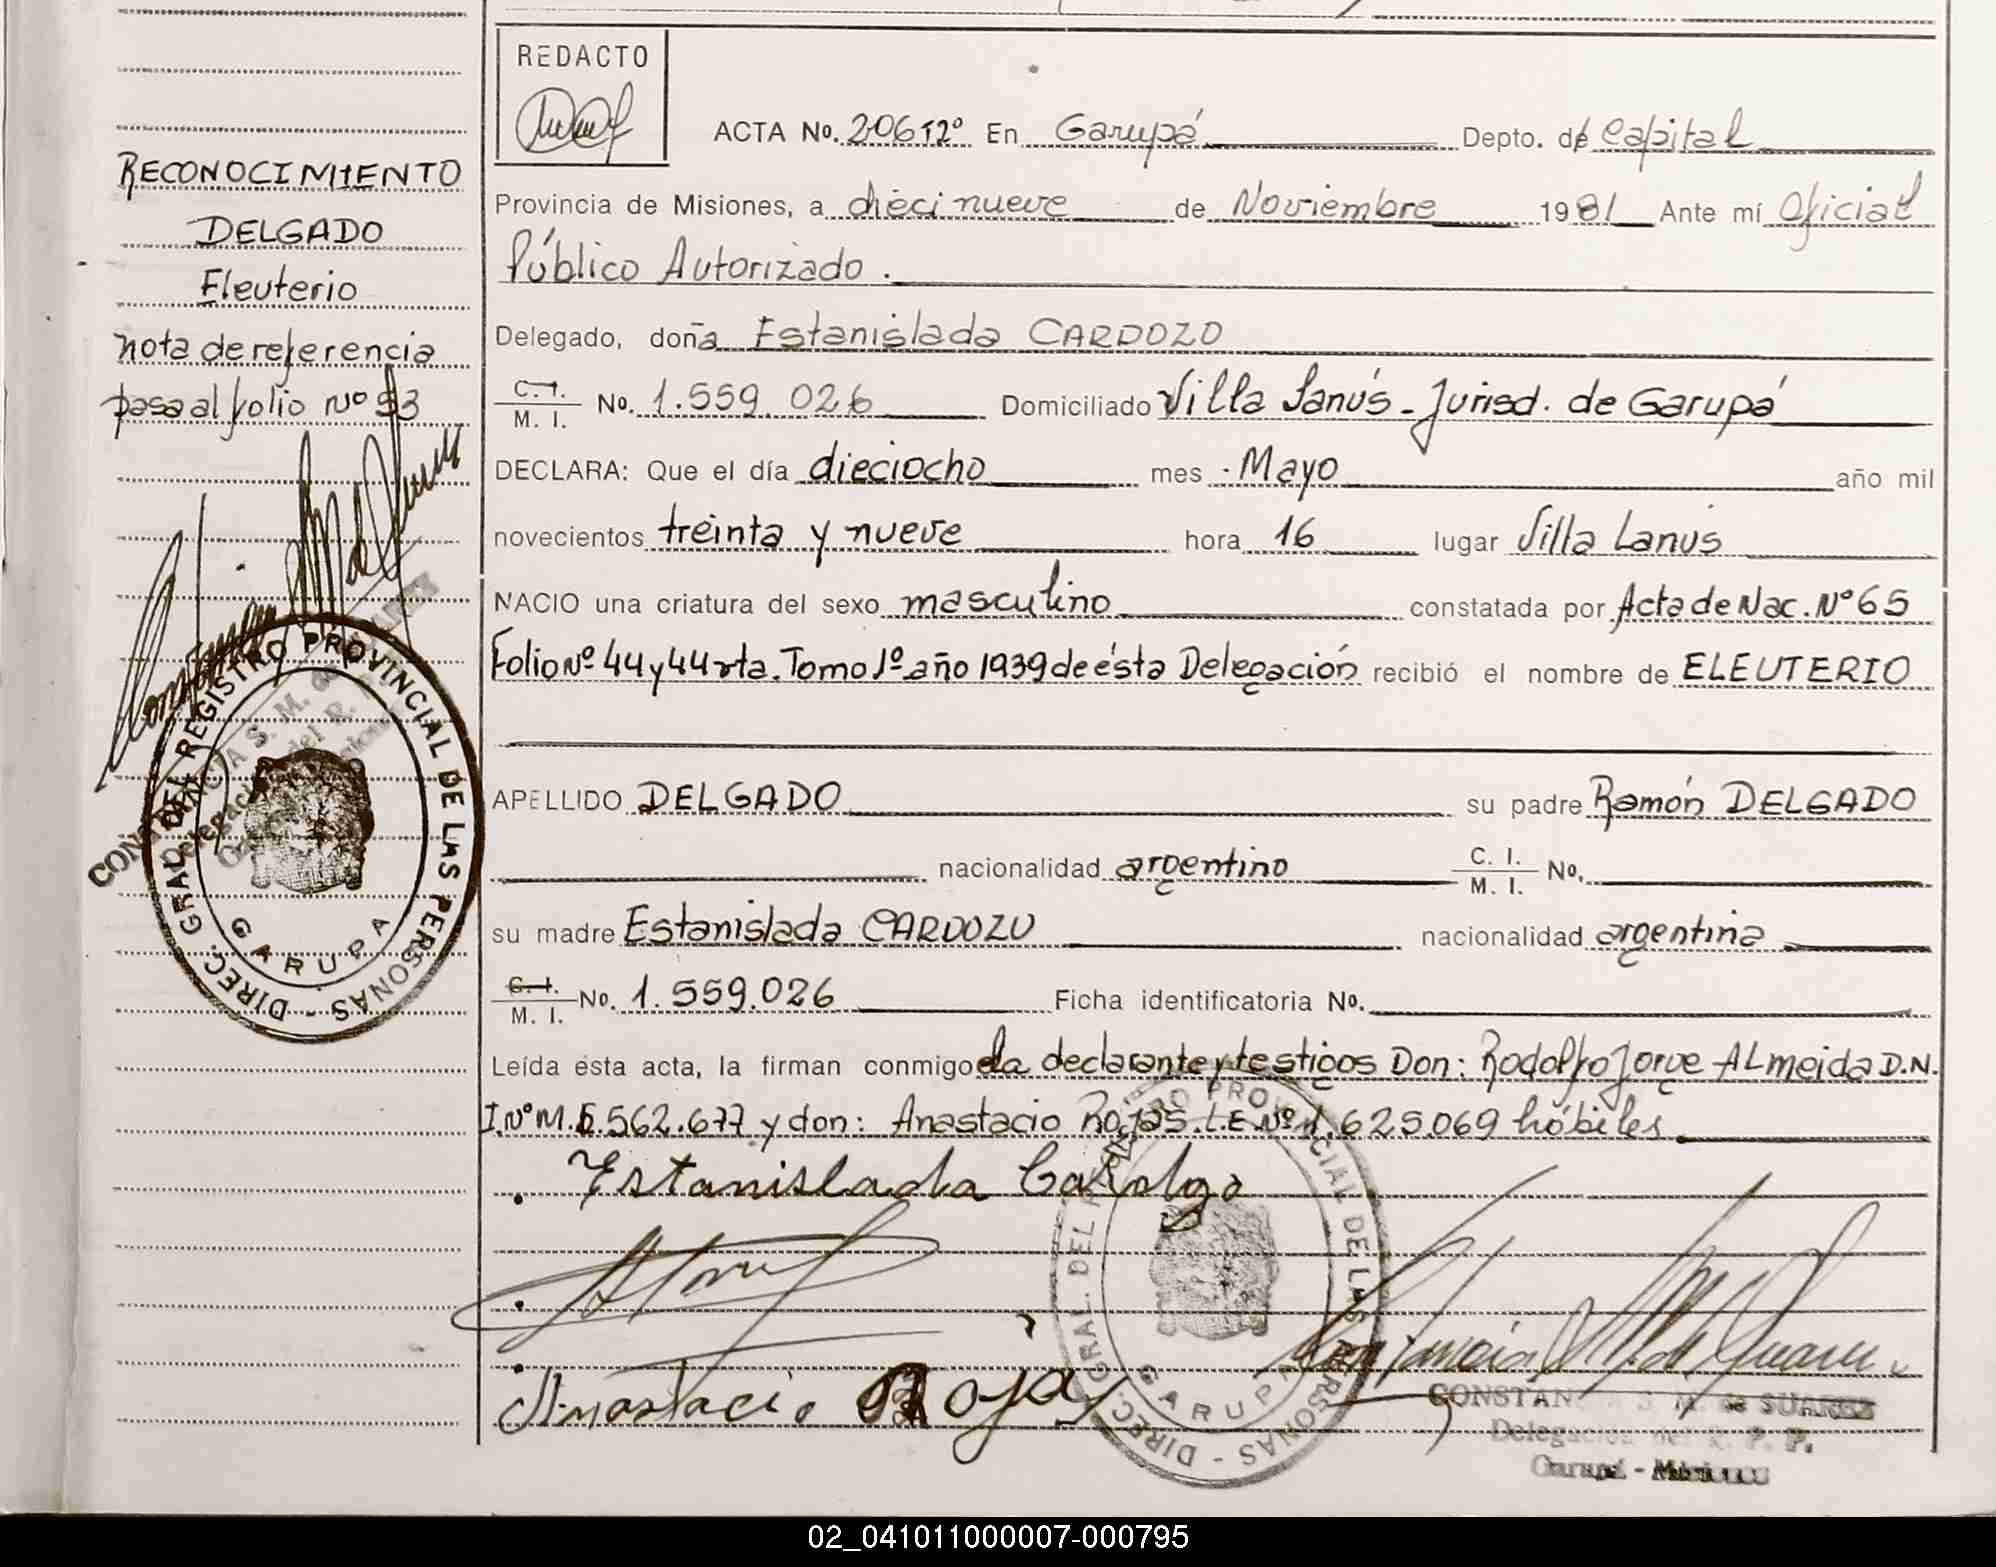 REDACTO
ACTA No. 206T2º En Garupá Depto. de Capital
RECONOCIMIENTO
DELGADO
Eleuterio
nota de referencia
pasa al folio Nº 93
Provincia de Misiones, a dieci nueve de Noviembre 1981 Ante mí Oficial
Público Autorizado.
Delegado, doña Estanislada CARDOZO
C. I. M. I. No. 1.559.026 Domiciliado Villa Lanús - Jurisd. de Garupá
DECLARA: Que el día dieciocho mes Mayo año mil
novecientos treinta y nueve hora 16 lugar Villa Lanús
NACIO una criatura del sexo masculino constatada por Acta de Nac. Nº 65
Folio Nº 44 y 44 vta. Tomo 1º año 1939 de ésta Delegación recibió el nombre de ELEUTERIO
APELLIDO DELGADO su padre Ramón DELGADO
nacionalidad argentino C. I. M. I. No.
su madre Estanislada CARDOZO nacionalidad argentina
C. I. M. I. No. 1.559.026 Ficha identificatoria No.
Leída esta acta, la firman conmigo la declarante y testigos Don: Rodolfo Jorge ALmeida D.N.
I. Nº M. 5.562.677 y don: Anastacio Rojas. L.E. Nº 1.625.069 hábiles
Estanislada Cardozo
Anastacio Rojas
DIREC. GRAL. DEL REGISTRO PROVINCIAL DE LAS PERSONAS -
GARUPA
DIREC. GRAL. DEL REGISTRO PROVINCIAL DE LAS PERSONAS -
GARUPA
CONSTANCIA S. M. de SUAREZ
Delegación del R. P. P.
Garupá - Misiones
02_041011000007-000795